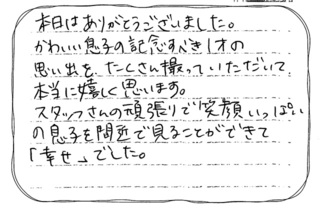 本日はありがとうございました。
かわいい息子の記念すべき1才の
思い出を、たくさん撮っていただいて
本当に嬉しく思います。
スタッフさんの頑張りで笑顔いっぱい
の息子を間近で見ることができて
「幸せ」でした。